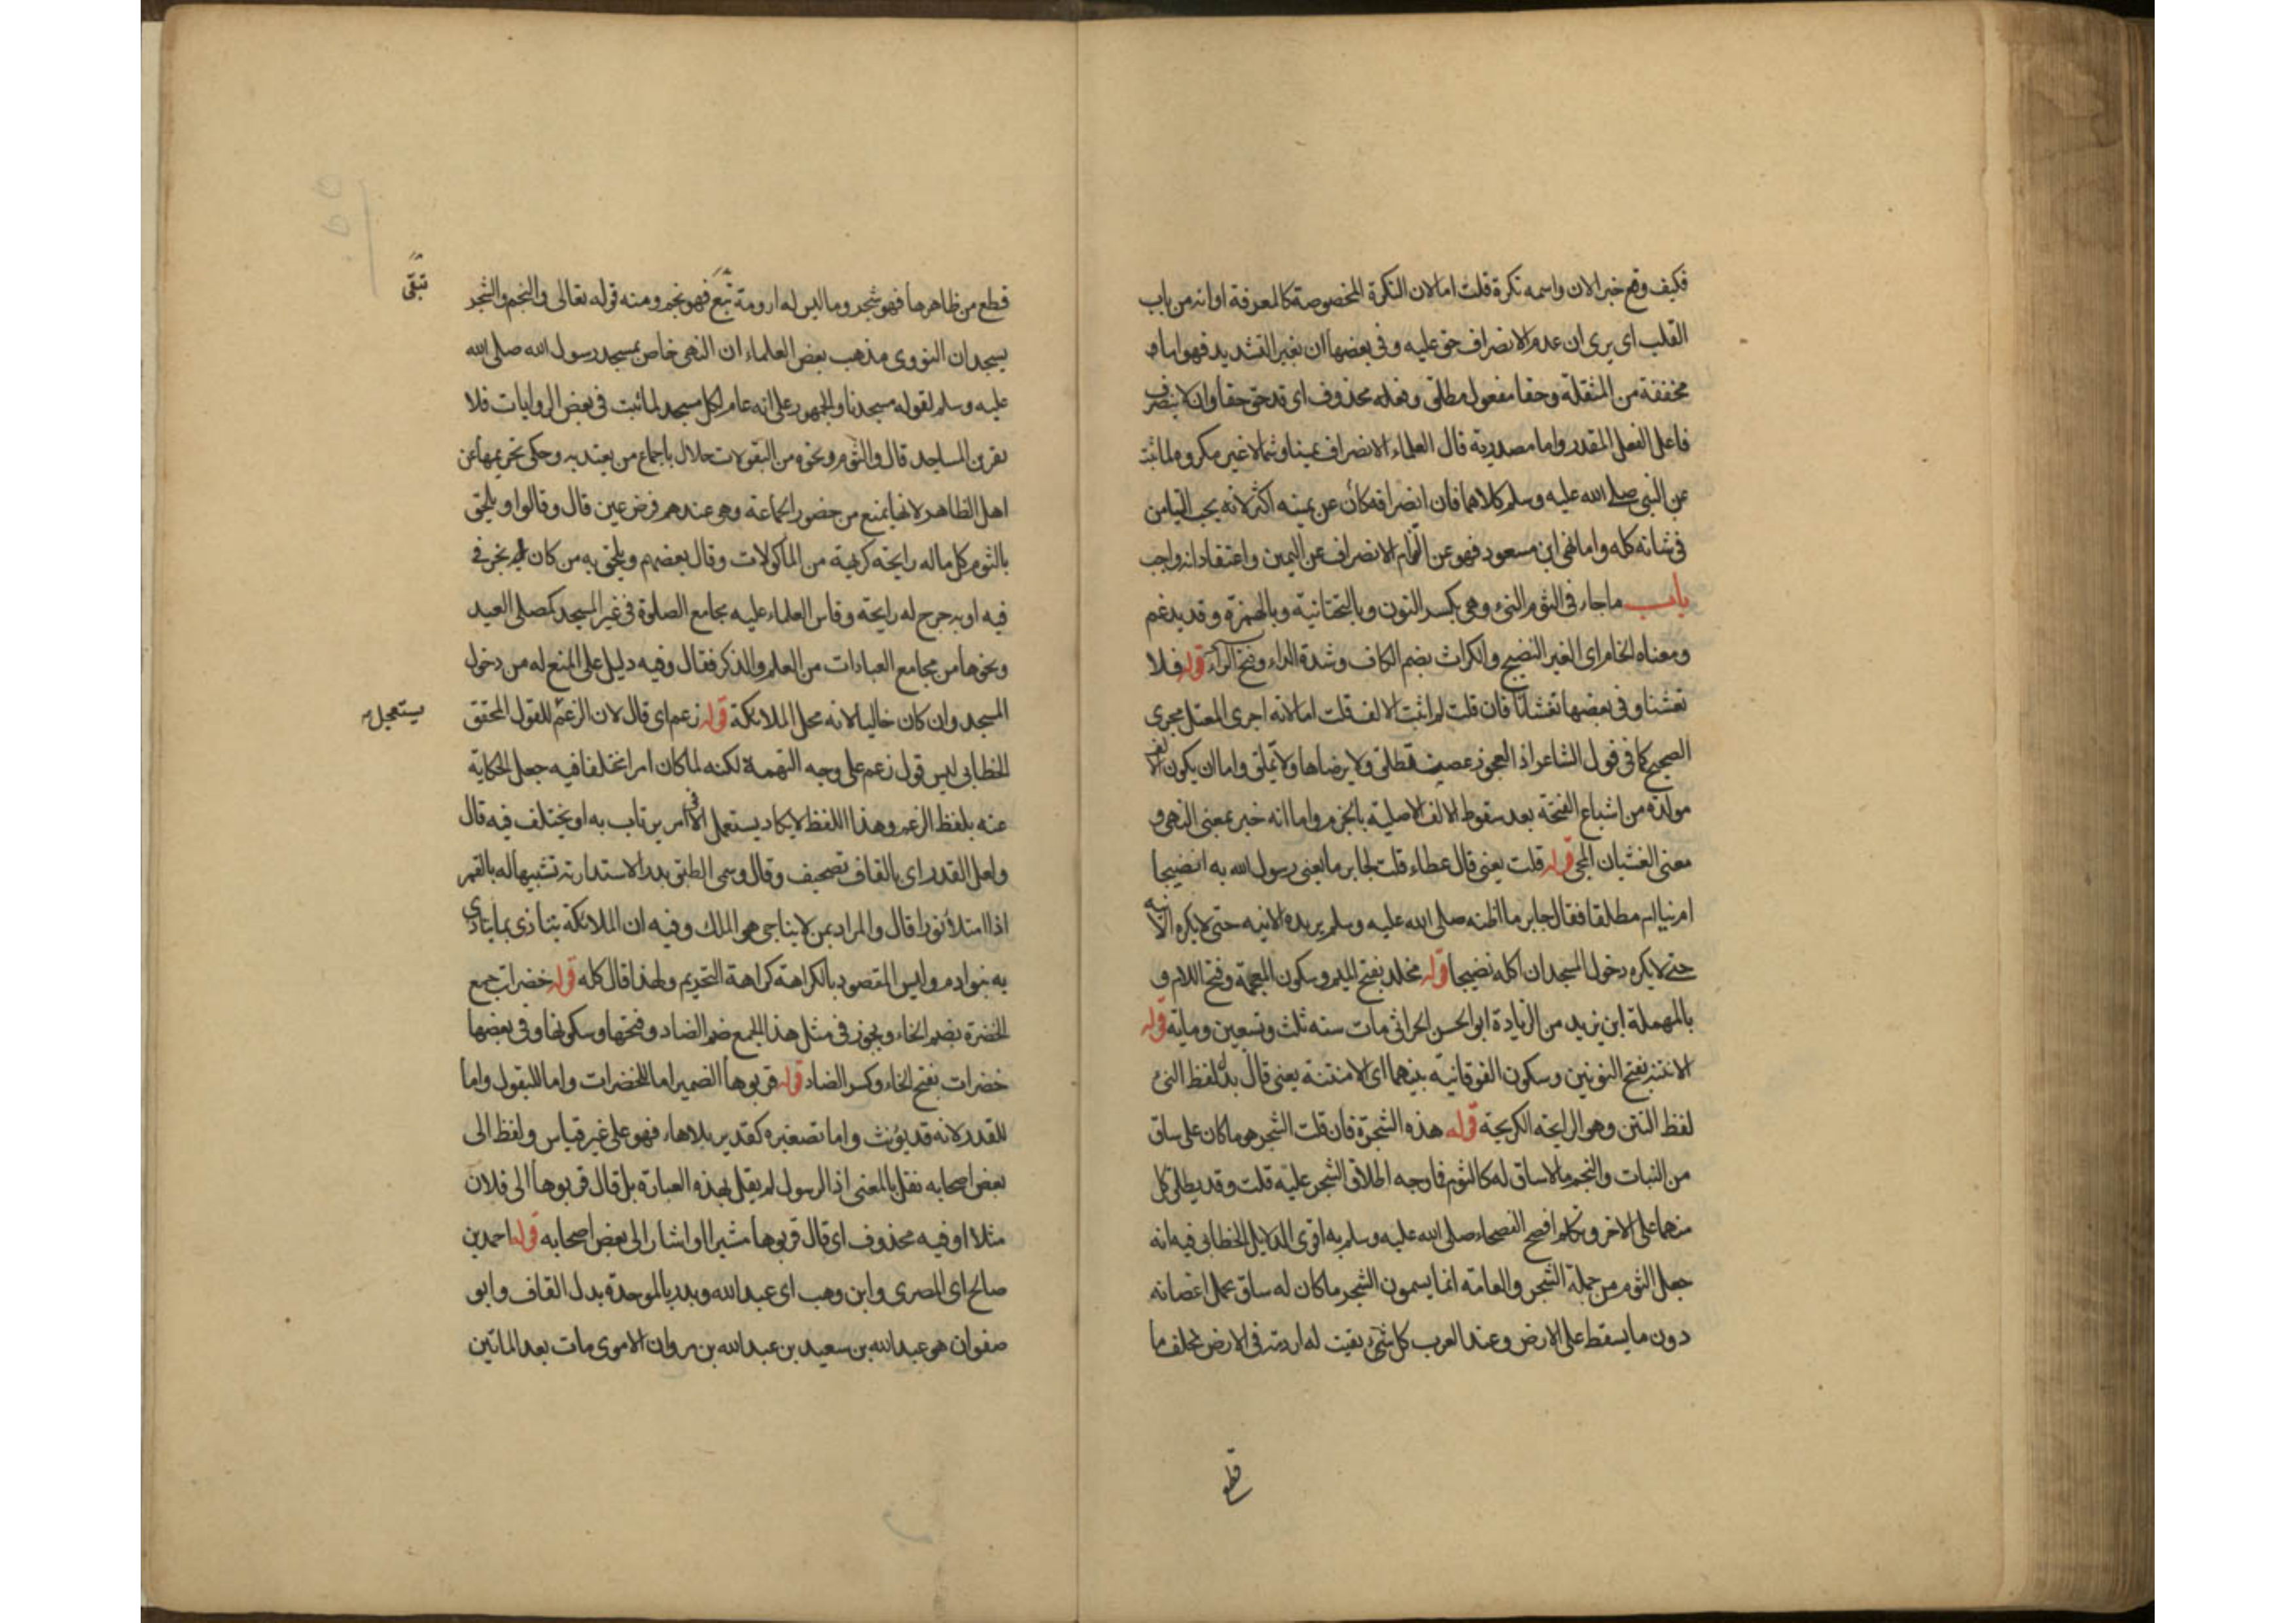 فكيف وقع خبر الان واسمه نكرة قلت اما لان النكرة المخصوصة كالمعرفة او انه من باب
القلب اى يرى ان عدم الانصراف حق عليه وفى بعضها ان بغير التشديد فهو اما
مخففة من المثقلة وحقا مفعول مطلق وفعله محذوف اى قد حق حقا وان لا ينصرف
فاعل الفعل المقدر واما مصدرية قال العلماء الانصراف يمينا وشمالا غير مكروه لما ثبت
عن النبى صلى الله عليه وسلم كلاهما فان انصرافه كان عن يمينه اكثر لانه يحب التيامن
فى شانه كله واما نهى ابن مسعود فهو عن التزام الانصراف عن اليمين واعتقاد انه واجب
باب ما جاء فى الثوم النىء وهى بكسر النون وبالتحتانية وبالهمزة وقد يدغم
ومعناه الخام اى الغير النضيج والكراث بضم الكاف وشدة الراء وفتح الراء قوله فلا
تغشنا وفى بعضها تغشانا فان قلت لم اثبت الالف قلت اما لانه اجرى المعتل مجرى
الصحيح كما فى قول الشاعر اذ العجوز غضبت فطلق ولا يرضاها ولا تملق واما ان يكون الالف
مولدة من اشباع الفتحة بعد سقوط الالف الاصلية بالجزم واما انه خبر بمعنى النهى و
معنى الغشيان المجئ قوله قلت يعنى قال عطاء قلت لجابر ما يعنى رسول الله به انضيجا
ام نيا ام مطلقا فقال جابر ما اظنه صلى الله عليه وسلم يريده الا نيه حتى لا يكره الا نيه
حتى لا يكره دخول المسجد ان اكله نضيجا قوله مخلد بفتح الميم وسكون المعجمة وفتح اللام و
بالمهملة ابن يزيد من الزيادة ابو الحسن الحرانى مات سنه ثلث وتسعين وماية قوله
الا نتنه بفتح النونين وسكون الفوقانية بينهما اى الا منتنه يعنى قال بدل لفظ النىء
لفظ النتن وهو الرايحة الكريهة قوله هذه الشجرة فان قلت الشجر هو ما كان على ساق
من النبات والنجم ما لا ساق له كالثوم فما وجه اطلاق الشجر عليه قلت وقد يطلق كل
منهما على الاخر وتكلم افصح الفصحاء صلى الله عليه وسلم به اقوى الدلايل الخطابى فيه انه
جعل الثوم من جملة الشجر والعامة انما يسمون الشجر ما كان له ساق يحمل اغصانه
دون ما يسقط على الارض وعند العرب كل شىء بقيت له ارومة فى الارض تخلف ما
قطع
قطع من ظاهرها فهو شجر وما ليس له ارومة تبقى فهو نجم ومنه قوله تعالى والنجم والشجر
تبقى
يسجدان النووى مذهب بعض العلماء ان النهى خاص بمسجد رسول الله صلى الله
عليه وسلم لقوله مسجدنا والجمهور على انه عام لكل مسجد لما ثبت فى بعض الروايات فلا
يقربن المساجد قال والثوم ونحوه من البقولات حلال باجماع من يعتد به وحكى تحريمها عن
اهل الظاهر لانها يمنع من حضور الجماعة وهو عندهم فرض عين قال وقالوا ويلحق
بالثوم كل ما له رايحة كريهة من الماكولات وقال بعضهم ويلحق به من كان به بخر فى
فيه او به جرح له رايحة وقاس العلماء عليه مجامع الصلوة فى غير المسجد كمصلى العيد
ونحوها من مجامع العبادات من العلم والذكر فقال وفيه دليل على المنع له من دخول
المسجد وان كان خاليا لانه محل الملائكة قوله زعم اى قال لان الزعم للقول المحقق
يستعمل
الخطابى ليس قول زعم على وجه التهمة لكنه لما كان امرا مختلفا فيه جعل الحكاية
عنه بلفظ الزعم وهذا اللفظ لا يكاد يستعمل الا فى امر يرتاب به او يختلف فيه قال
ولعل القدر اى بالقاف تصحيف وقال وسمى الطبق بدرا لاستدارته تشبيها له بالقمر
اذا امتلأ نورا قال والمراد بمن لا يناجى هو الملك وفيه ان الملائكة يتأذى بما يتاذى
به بنو ادم وليس المقصود بالكراهة كراهة التحريم ولهذا قال كله قوله خضرات جمع
الخضرة بضم الخاء ويجوز فى مثل هذا الجمع ضم الضاد وفتحها وسكونها وفى بعضها
خضرات بفتح الخاء وكسر الضاد قوله قربوها الضمير اما للخضرات واما للبقول واما
للقدر لانه قد يؤنث واما تصغيره كقدير بلا هاء فهو على غير قياس ولفظ الى
بعض اصحابه نقل بالمعنى اذ الرسول لم يقل بهذه العبارة بل قال قربوها الى فلان
مثلا او فيه محذوف اى قال قربوها مشيرا او اشار الى بعض اصحابه قوله احمد بن
صالح اى المصرى وابن وهب اى عبد الله وببدر بالموحدة بدل القاف وابو
صفوان هو عبد الله بن سعيد بن عبد الله بن مروان الاموى مات بعد الماتين